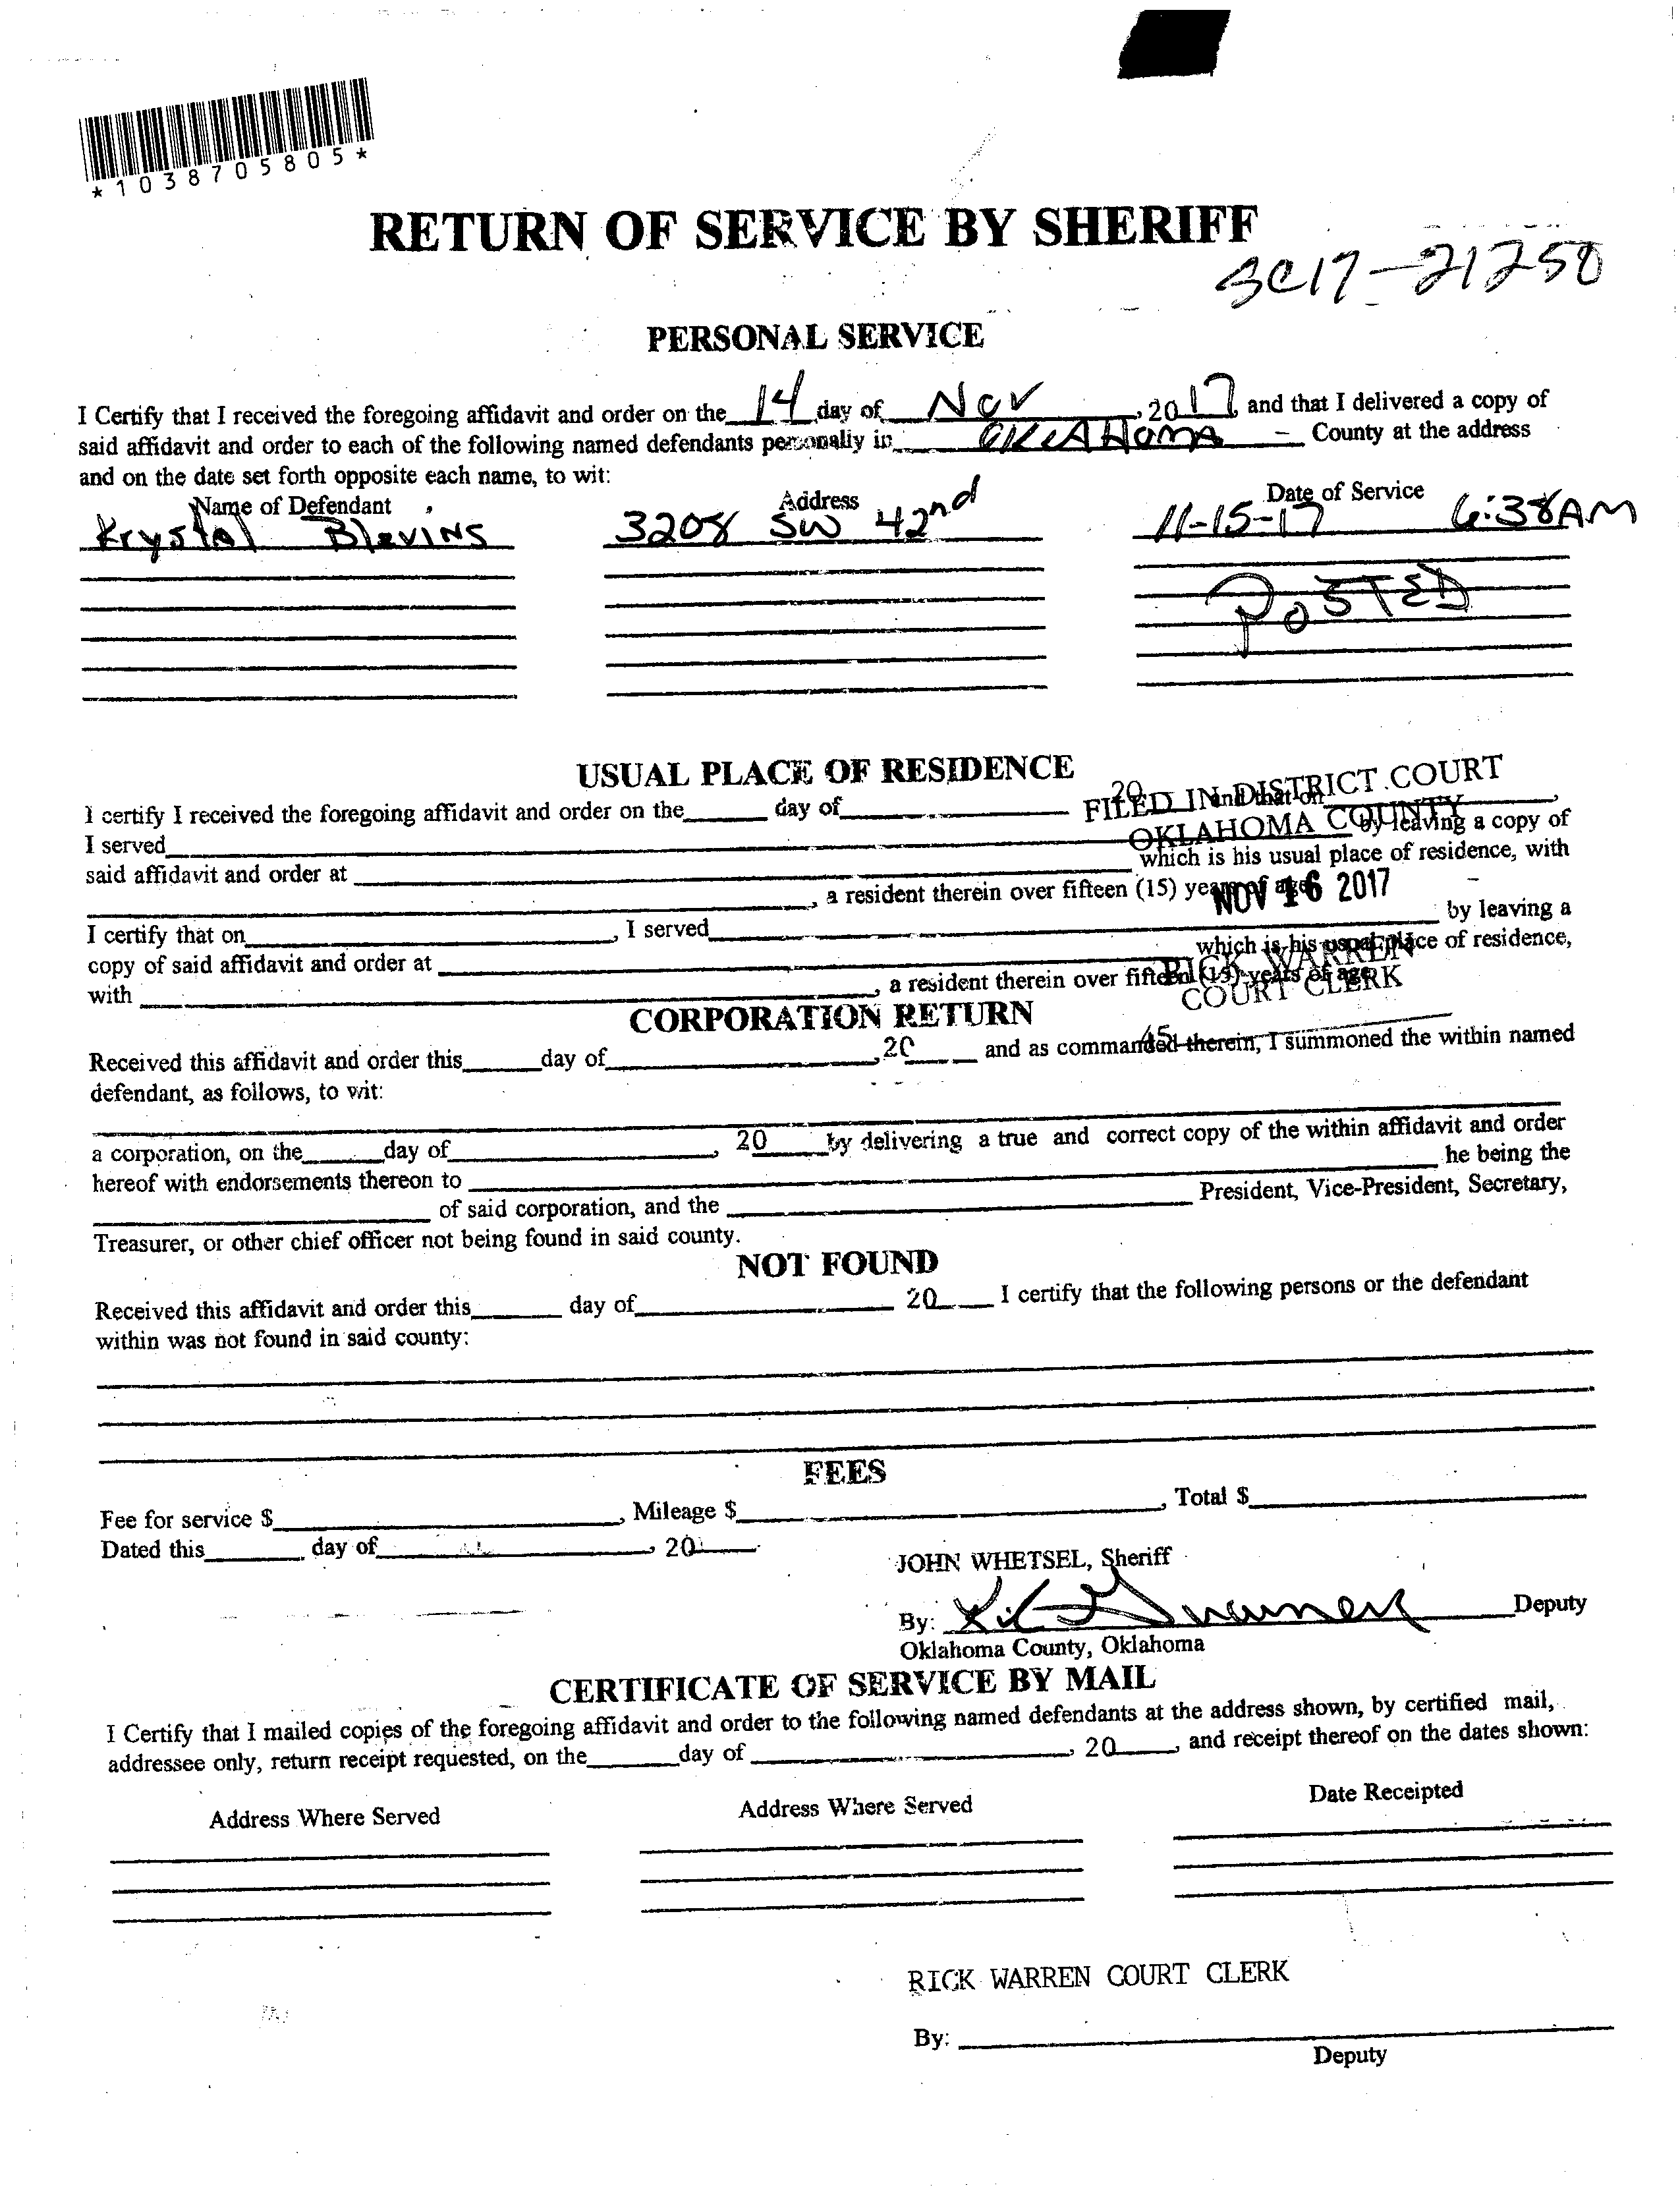 *1038705805*
RETURN OF SERVICE BY SHERIFF
SC17-21250
PERSONAL SERVICE
I Certify that I received the foregoing affidavit and order on the 14 day of Nov, 2017, and that I delivered a copy of
said affidavit and order to each of the following named defendants personally in OKLAHOMA County at the address
and on the date set forth opposite each name, to wit:
Name of Defendant Address Date of Service
Krystal Blevins 3208 SW 42nd 11-15-17 6:38AM
POSTED
USUAL PLACE OF RESIDENCE
I certify I received the foregoing affidavit and order on the____ day of____ 20 and that on
FILED IN DISTRICT COURT
OKLAHOMA COUNTY
I served____ by leaving a copy of
said affidavit and order at____ which is his usual place of residence, with
____, a resident therein over fifteen (15) years of age.
NOV 16 2017
I certify that on____, I served____ by leaving a
copy of said affidavit and order at____ which is his usual place of residence,
with____, a resident therein over fifteen (15) years of age.
RICK WARREN
COURT CLERK
45
CORPORATION RETURN
Received this affidavit and order this____day of____, 20____ and as commanded therein, I summoned the within named
defendant, as follows, to wit:
a corporation, on the____day of____, 20____by delivering a true and correct copy of the within affidavit and order
hereof with endorsements thereon to____ he being the
____ of said corporation, and the____ President, Vice-President, Secretary,
Treasurer, or other chief officer not being found in said county.
NOT FOUND
Received this affidavit and order this____ day of____ 20____ I certify that the following persons or the defendant
within was not found in said county:
FEES
Fee for service $____, Mileage $____, Total $____
Dated this____ day of____, 20____
JOHN WHETSEL, Sheriff
By:____Deputy
Oklahoma County, Oklahoma
CERTIFICATE OF SERVICE BY MAIL
I Certify that I mailed copies of the foregoing affidavit and order to the following named defendants at the address shown, by certified mail,
addressee only, return receipt requested, on the____day of____, 20____, and receipt thereof on the dates shown:
Address Where Served Address Where Served Date Receipted
RICK WARREN COURT CLERK
By:____
Deputy